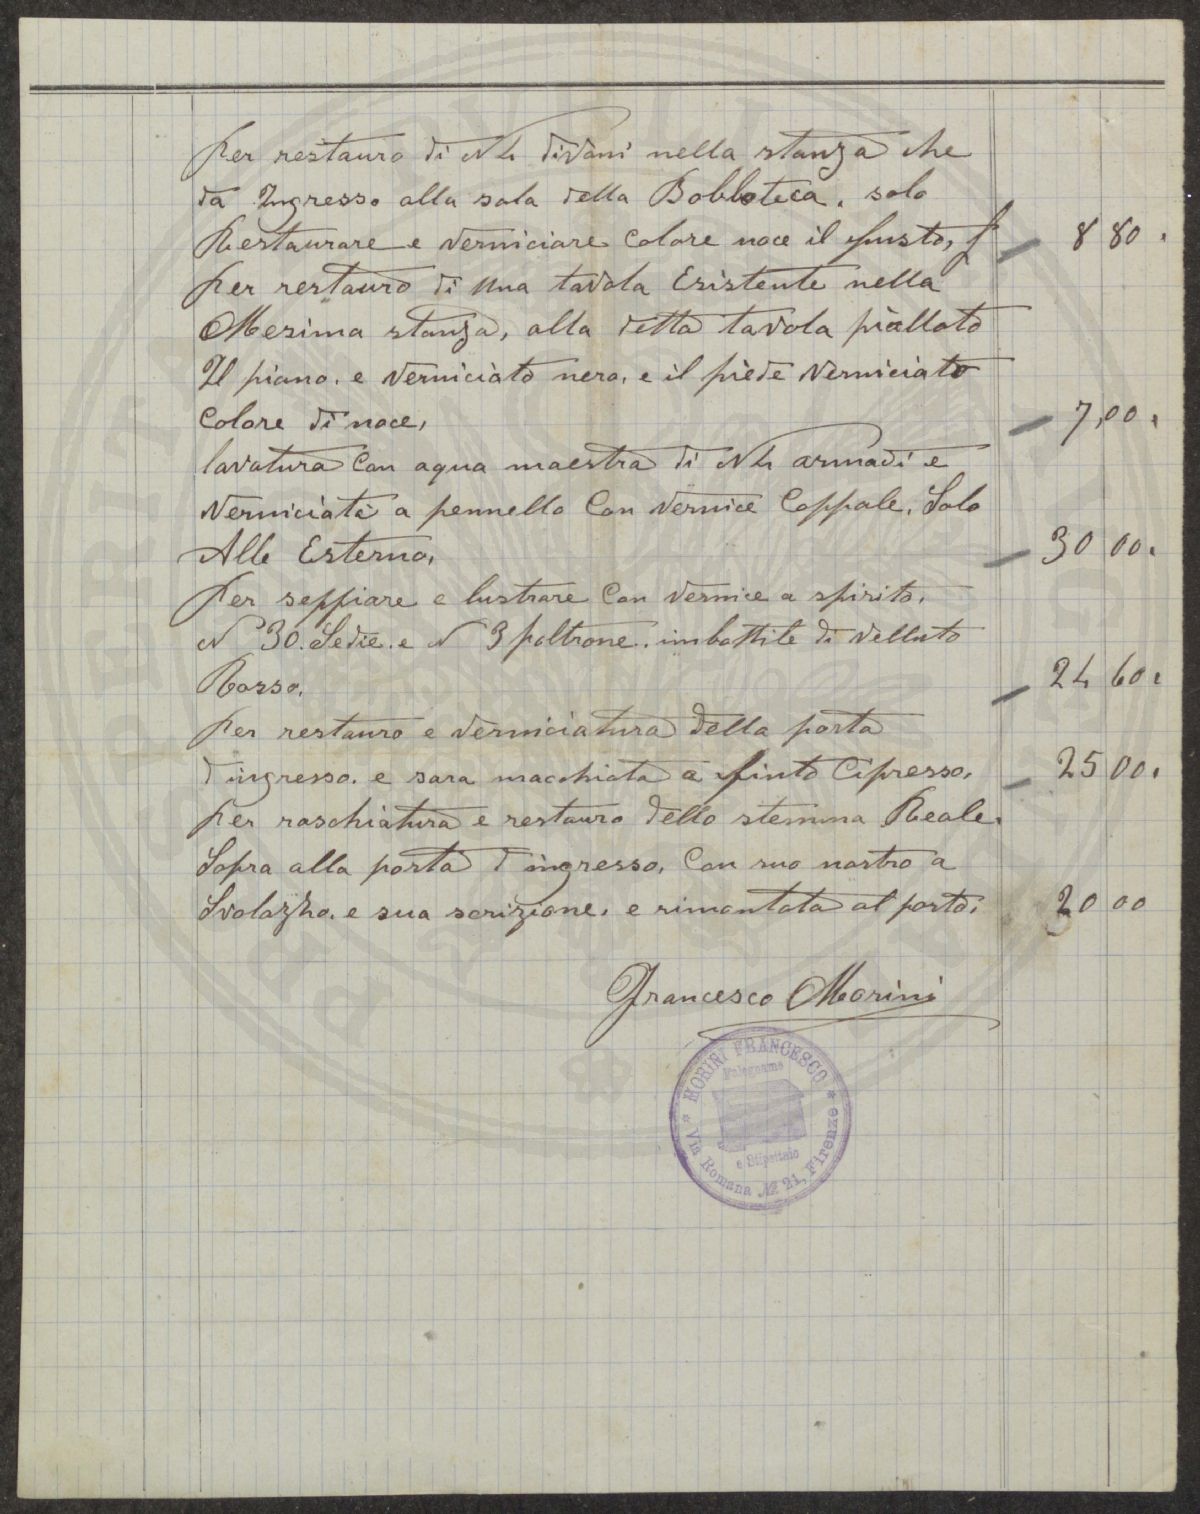 Per restauro di N 4 divani nella stanza che
da Ingresso alla sala della Bobloteca. solo
Restaurare e verniciare Colore noce il fusto, £ 8 80.
Per restauro di una tavola Esistente nella
Mesima stanza, alla detta tavola piallato
Il piano. e verniciato nero. e il piede verniciato
Colore di noce, 7,00.
lavatura Con aqua maestra di N 4 armadi e
Verniciati a pennello Con vernice Coppale. Solo
Alle Esterno. 30 00.
Per seppiare e lustrare Con vernice a spirito.
N 30. Sedie. e N 3 poltrone. imbottite di velluto
Rosso. 24 60.
Per restauro e verniciatura della porta
d ingresso. e sara macchiata a finto Cipresso. 25 00.
Per raschiatura e restauro dello stemma Reale.
Sopra alla porta d ingresso. Con suo nastro a
Svolazho. e sua scrizione. e rimontata al posto. 20 00
Francesco Morini
MORINI FRANCESCO
Falegname
e Stipettaio
Via Romana № 21, Firenze